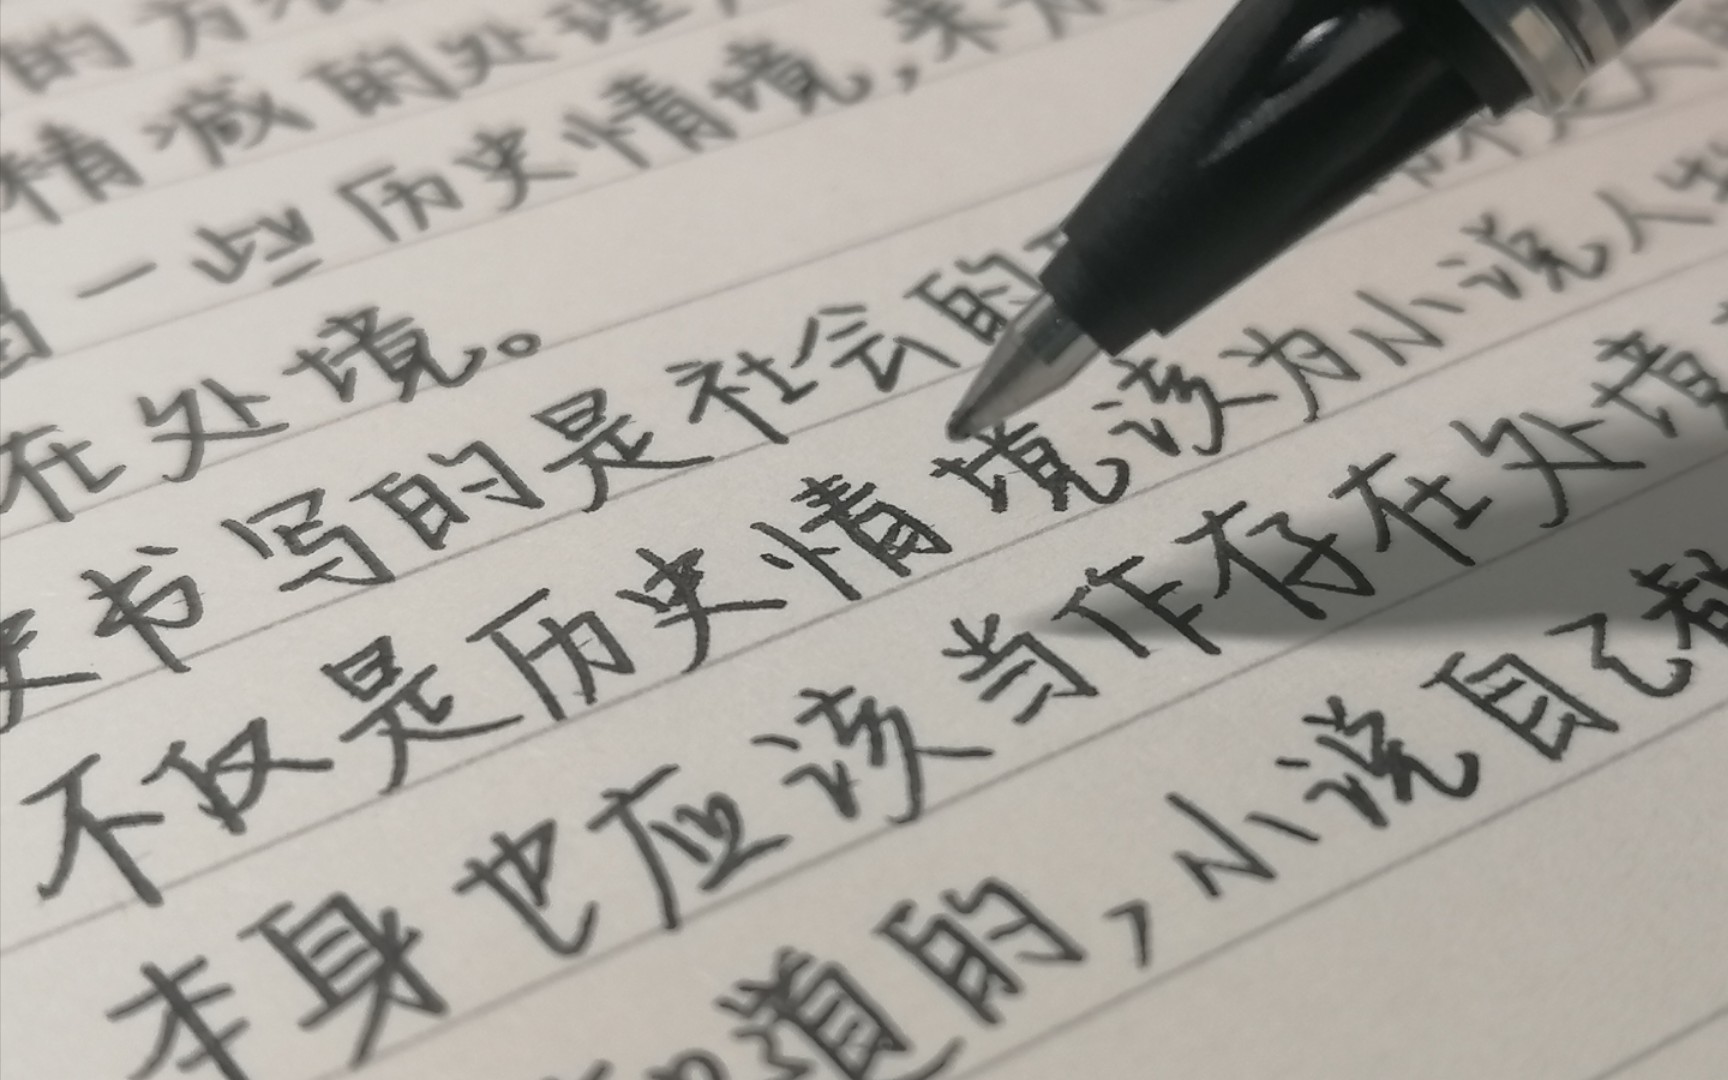 的方
精减的处理
一些历史情境,来
在处境。
史书写的是社会的
不仅是历史情境该为小说人
本身也应该当作存在处境
道的,小说自己都